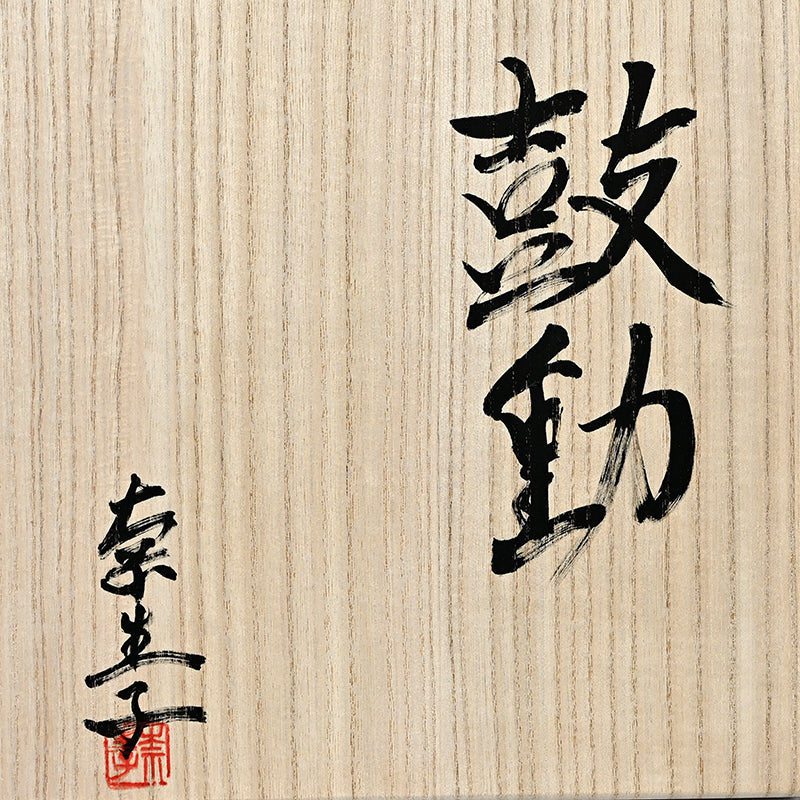 鼓動
奈生子